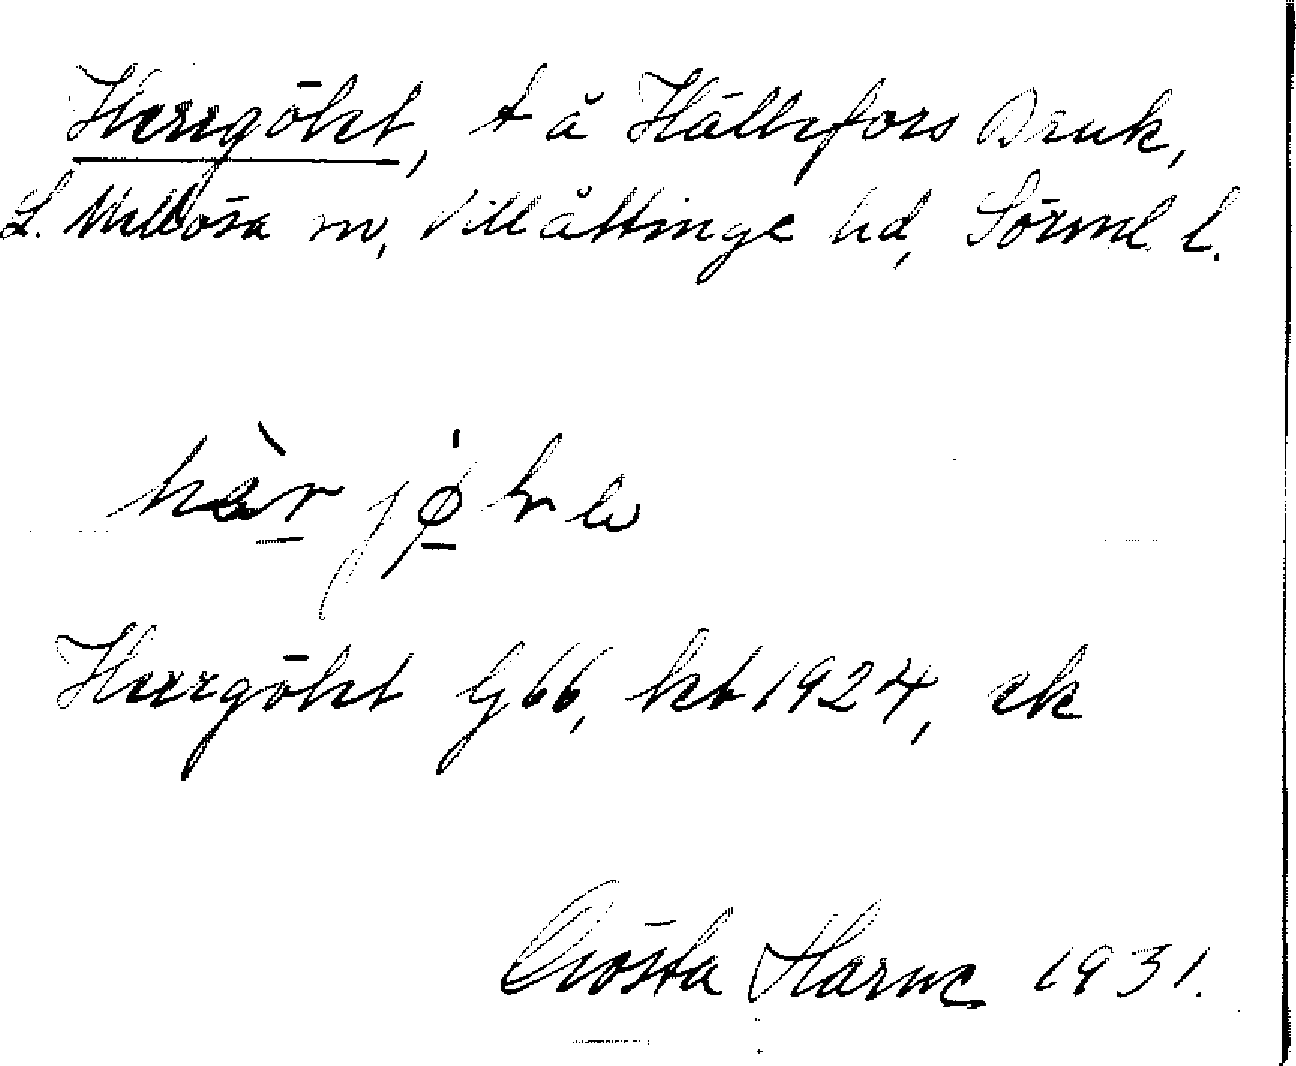 Herrgökt, t å Hällefors Bruk,
L. Mellösa sn, Villåttinge hd, Sörml l.
hèr jø̀kte
Herrgökt G66, kb 1924, ek
Gösta Harne 1931.